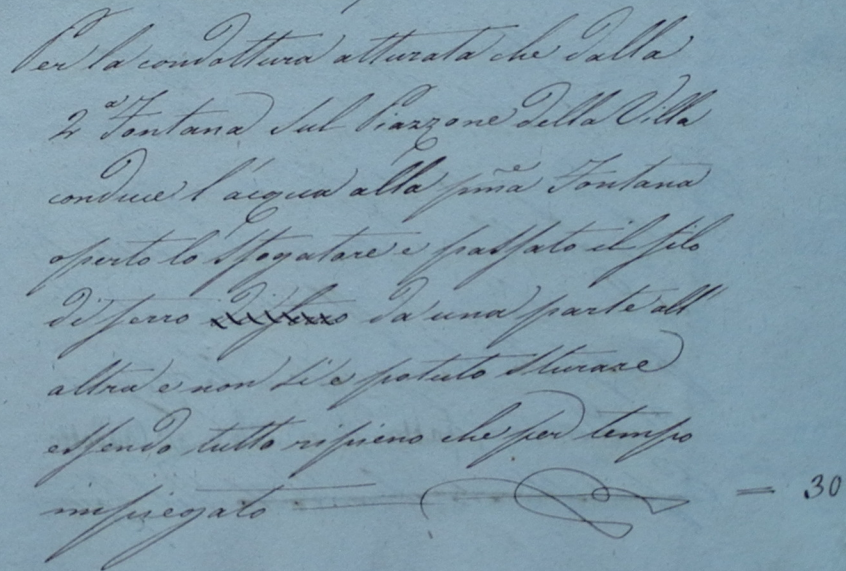 Per la condottura atturata che dalla
2.a Fontana sul Piazzone della Villa
conduce l'acqua alla pm̃a Fontana
operto lo sfogatore e passato il filo
di ferro da una parte all'
altra e non si è potuto sturare
essendo tutto ripieno che per tempo
impiegato = 30